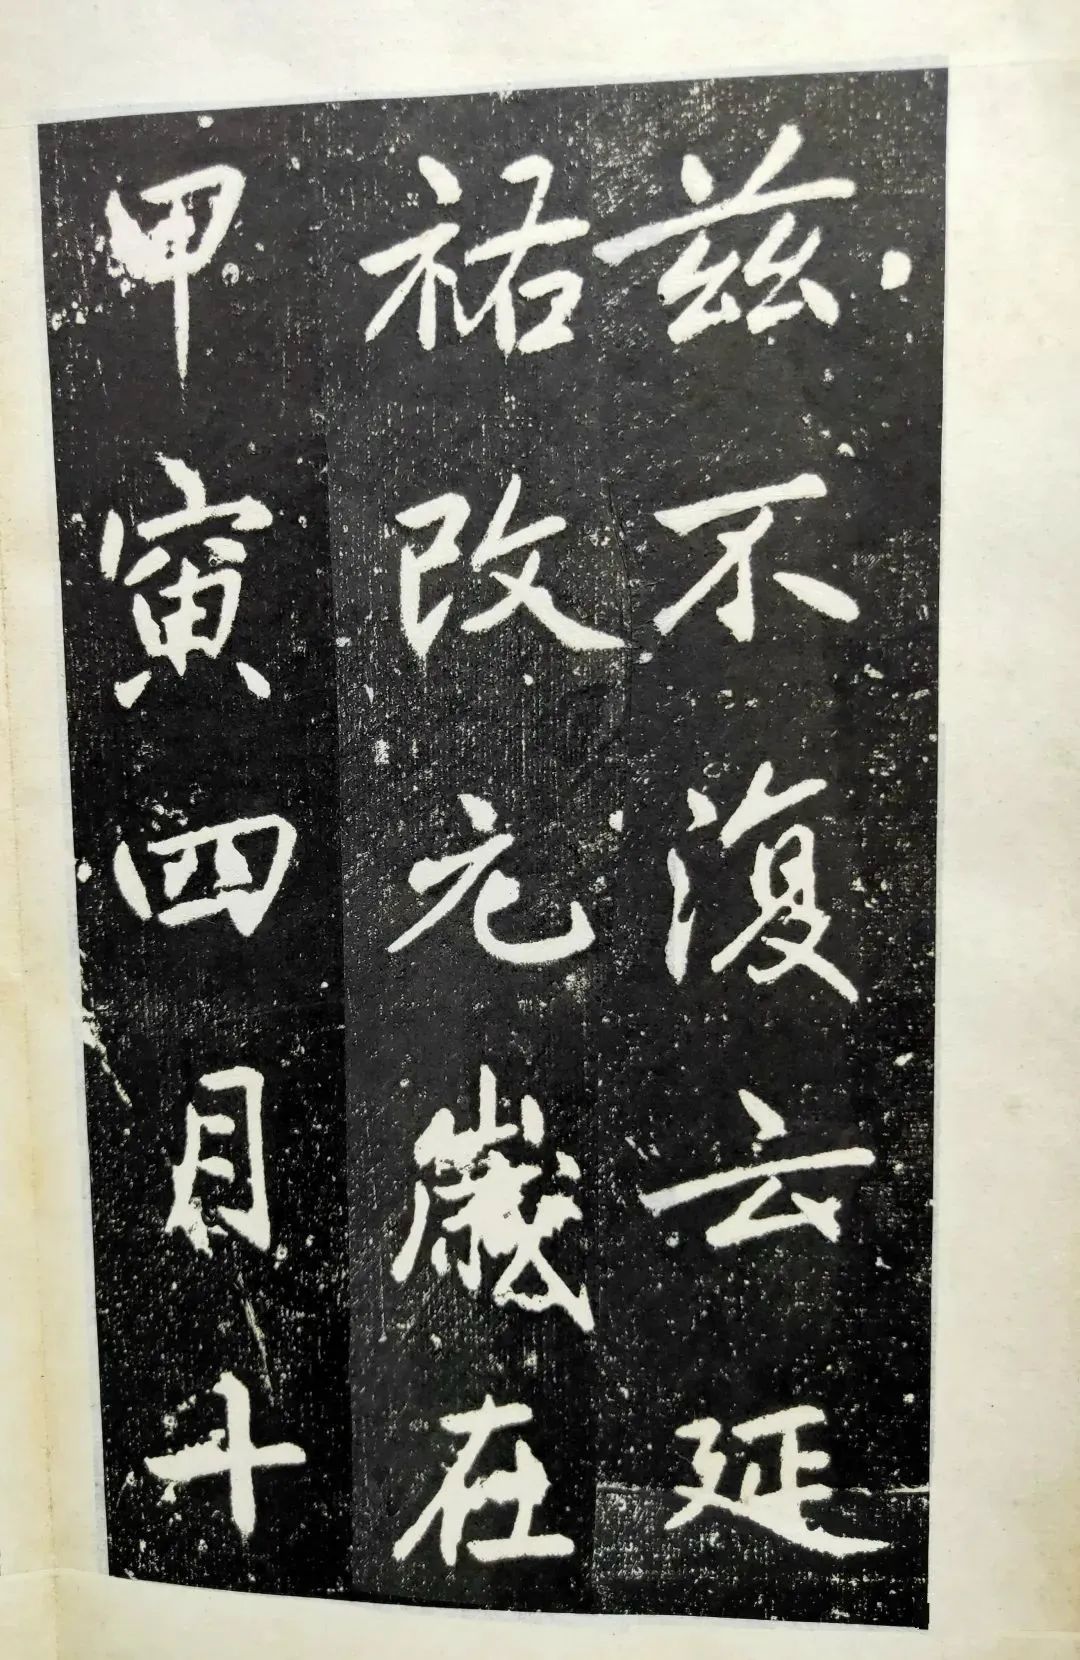 兹不復云延
祐改元歲在
甲寅四月十